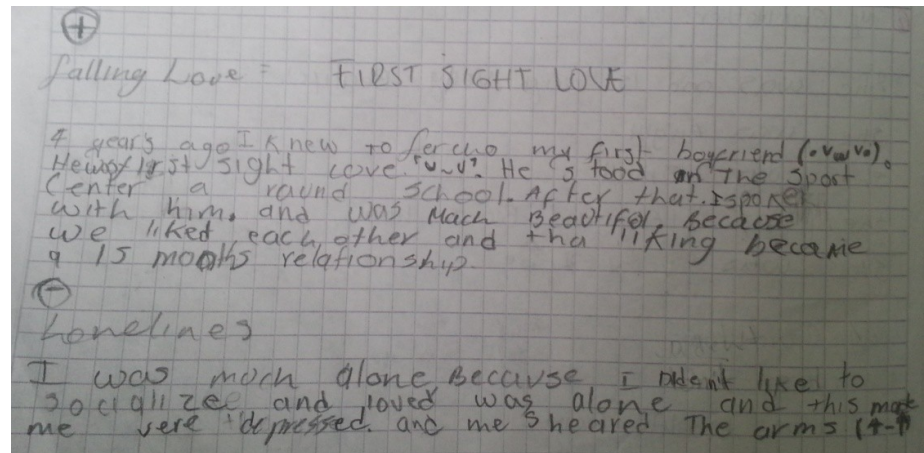 +
Falling Love = FIRST SIGHT LOVE
4 years ago I Knew to fercho my first boyfriend
He first sight love. He stood in The Sport
Center a raund school. After that. I spoke
with him. and was Mach Beautifol. Because
we liked each other and tha liking became
a 15 months relationship
-
Lonelines
I was moch alone, Because I like to
socializee and loved was alone and this made
me vere depressed. and me sheared The arms